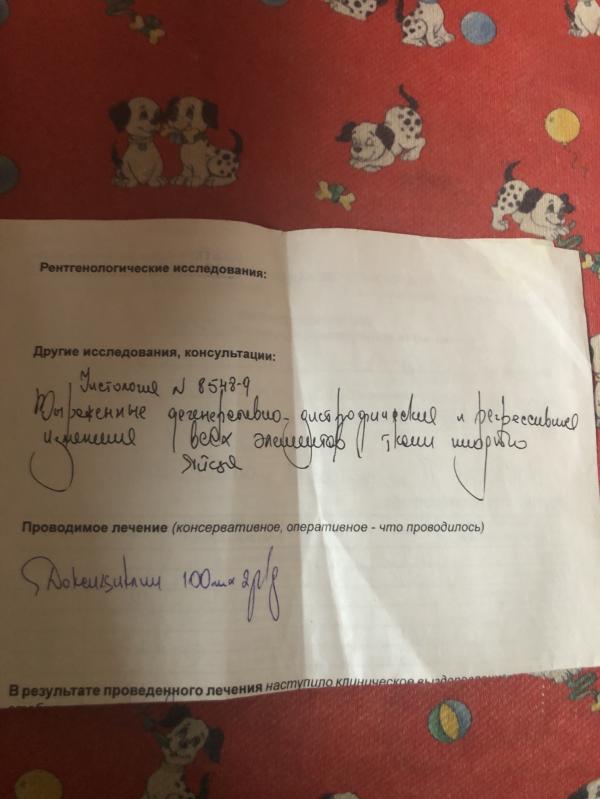 Рентгенологические исследования:
Другие исследования, консультации:
Гистология N 8548-9
Выраженные дегенеративно-дистрофические и регрессивные
изменения всех элементов ткани плодного
яйца
Проводимое лечение (консервативное, оперативное - что проводилось)
Доксициклин 100мг 2р/д
В результате проведенного лечения наступило клиническое выздоровление